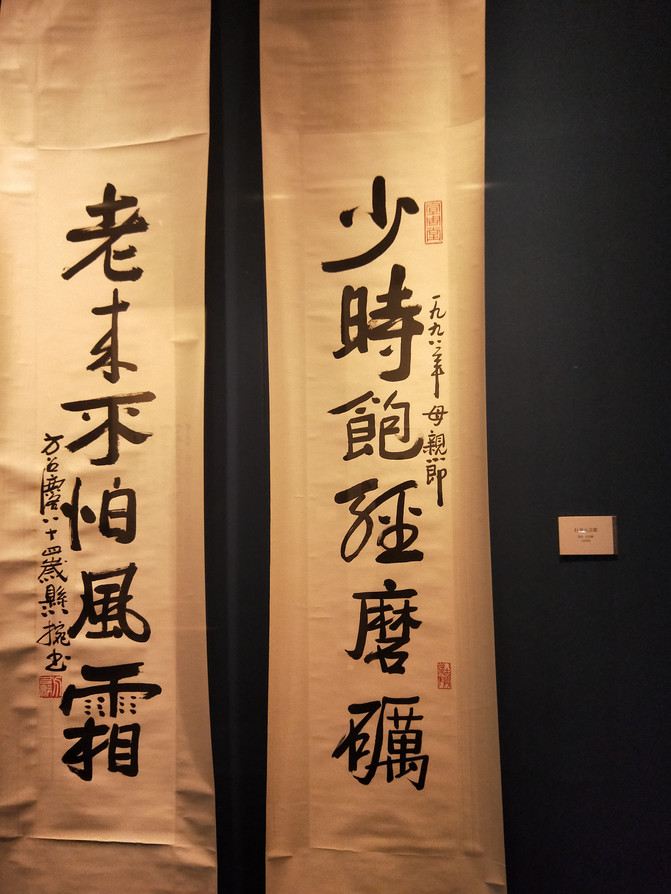 少時飽經磨礪
一九九八年母親節
老来不怕風霜
方召麐八十四歲懸捥书